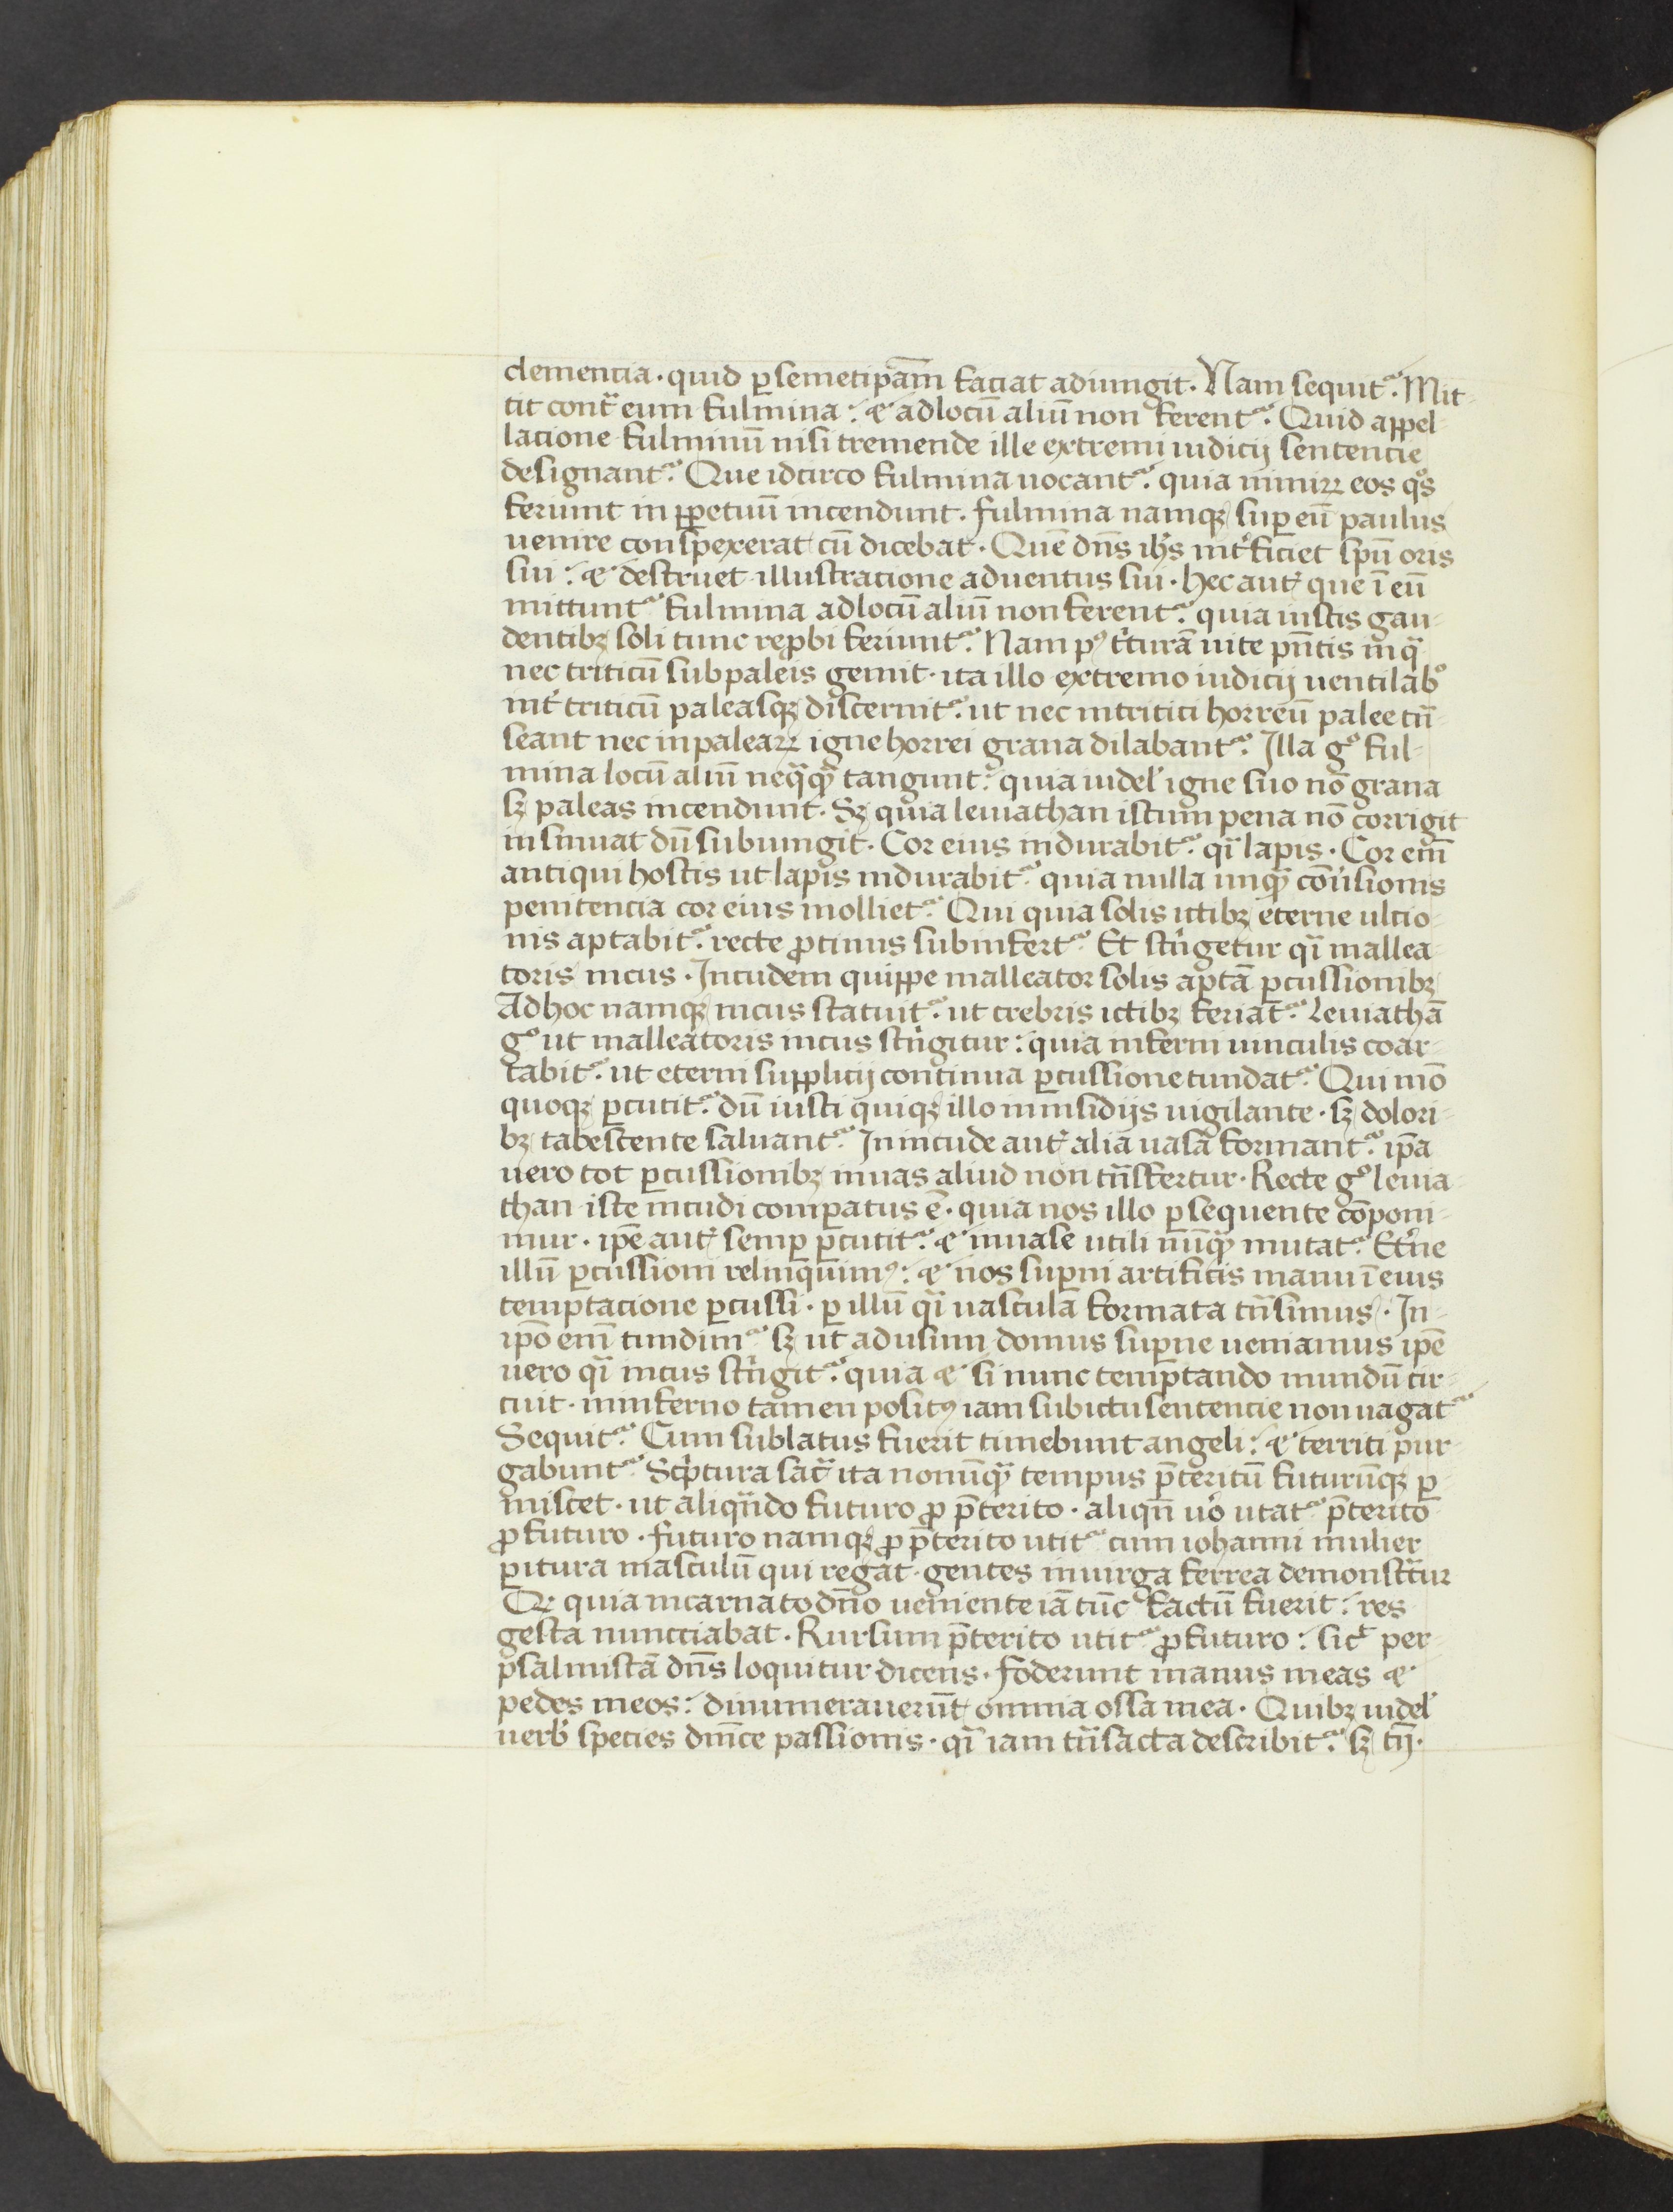 clemencia · quid ꝑ semetip̄am faciat adiungit · Nam sequit᷑ · Mit-
tit cont͛ eum fulmina : et ad locū aliū non ferent᷑ · Quid appel-
lacione fulminū nisi tremende ille extremi iudicij sentencie
designant᷑ · Que idcirco fulmina uocant᷑ · quia nimiꝝ eos qͦs
feriunt in ꝑpetuū incendunt · fulmina namqꝫ suꝑ eū paulus
uenire conspexerat cū dicebat · Quē dn̄s ihs̄ int͛ficiet sp̄u oris
sui : et destruet illustracione aduentus sui · hec aut̄ que ī eū
mittunt᷑ fulmina ad locū aliū non ferent᷑ · quia iustis gau-
dentibꝫ soli tunc reꝓbi feriunt᷑ · Nam pꝰ t͛turā uite pn̄tis in qͣ
nec triticū sub paleis gemit · ita illo extremo iudicij uentilabͦ
int͛ triticū paleasqꝫ discernit᷑ · ut nec in tritici horreū palee tn̄-
seant nec in paleaꝝ igne horrei grana dilabant᷑ · Illa gͦ ful-
mina locū aliū neqͣqͣꝫ tangunt · quia uidel͛ igne suo nō grana
sꝫ paleas incendunt · Sꝫ quia leuiathan istum pena nō corrigit
insinuat dū subiungit · Cor eius indurabit᷑ · qͣi lapis · Cor eni᷑
antiqui hostis ut lapis indurabit᷑ · quia nulla unqͣꝫ cōu͛sionis
penitencia cor eius molliet᷑ · Qui quia solis ictibꝫ eterne ulcio-
nis aptabit᷑ · recte ꝓtinus subinfert᷑ · Et stͥngetur qͣi mallea-
toris incus · Incudem quippe malleator solis aptā ꝑcussionibꝫ
Ad hoc namqꝫ incus statuit᷑ · ut crebris ictibꝫ feriat᷑ · Leuiathā
gͦ ut malleatoris incus stͥngitur : quia inferni uinculis coar-
tabit᷑ · ut eterni supplicij continua ꝑcussione tundat᷑ · Qui mō
quoqꝫ ꝑcutit᷑ · dū iusti quiqꝫ illo in insidijs uigilante · sꝫ dolori-
bꝫ tabescente saluant᷑ · In incude aut̄ alia uasa formant᷑ · ip̄a
uero tot ꝑcussionibꝫ in uas aliud non tn̄sfertur · Recte gͦ leuia-
than iste incudi comꝑatus ē · quia nos illo ꝑsequente cōponi-
mur · ip̄e aut̄ semꝑ ꝑcutit᷑ · et in uase utili nūqͣꝫ mutat᷑ · Et͛ne
illū ꝑcussioni relinquimꝰ : et nos suꝑni artificis manu ī eius
temptacione ꝑcussi · ꝑ illū qͣi uascula formata tn̄simus · In
ip̄o eni᷑ tundim᷑ sꝫ ut ad usum domus suꝑne ueniamus ip̄e
uero qͣi incus stͥngit᷑ · quia et si nunc temptando mundū cir-
cuit · in inferno tamen positꝰ iam sub ictu sentencie non uagat᷑
Sequit᷑ · Cum sublatus fuerit timebunt angeli : et territi pur-
gabunt᷑ · Scͥptura sac͛ ita nonūqͣꝫ tempus p̄teritū futurūqꝫ ꝑ-
miscet · ut aliqͣndo futuro ꝓ p̄terito · aliqn̄ uͦ utat᷑ p̄terito
ꝓ futuro · futuro namqꝫ ꝓ p̄terito utit᷑ cum iohanni mulier
ꝑitura masculū qui regat gentes in uirga ferrea demonstͣtur
Qꝫ quia incarnato dn̄o ueniente iā tūc factū fuerit : res
gesta nuncciabat · Rursum p̄terito utit᷑ ꝓ futuro : sic̄ per
psalmistā dn̄s loquitur dicens · foderunt manus meas et
pedes meos : dinumerauerūt omnia ossa mea · Quibꝫ uidel͛
uerb͛ species dn̄ice passionis · qͣi iam tn̄sacta describit᷑ · sꝫ tn̄ ·